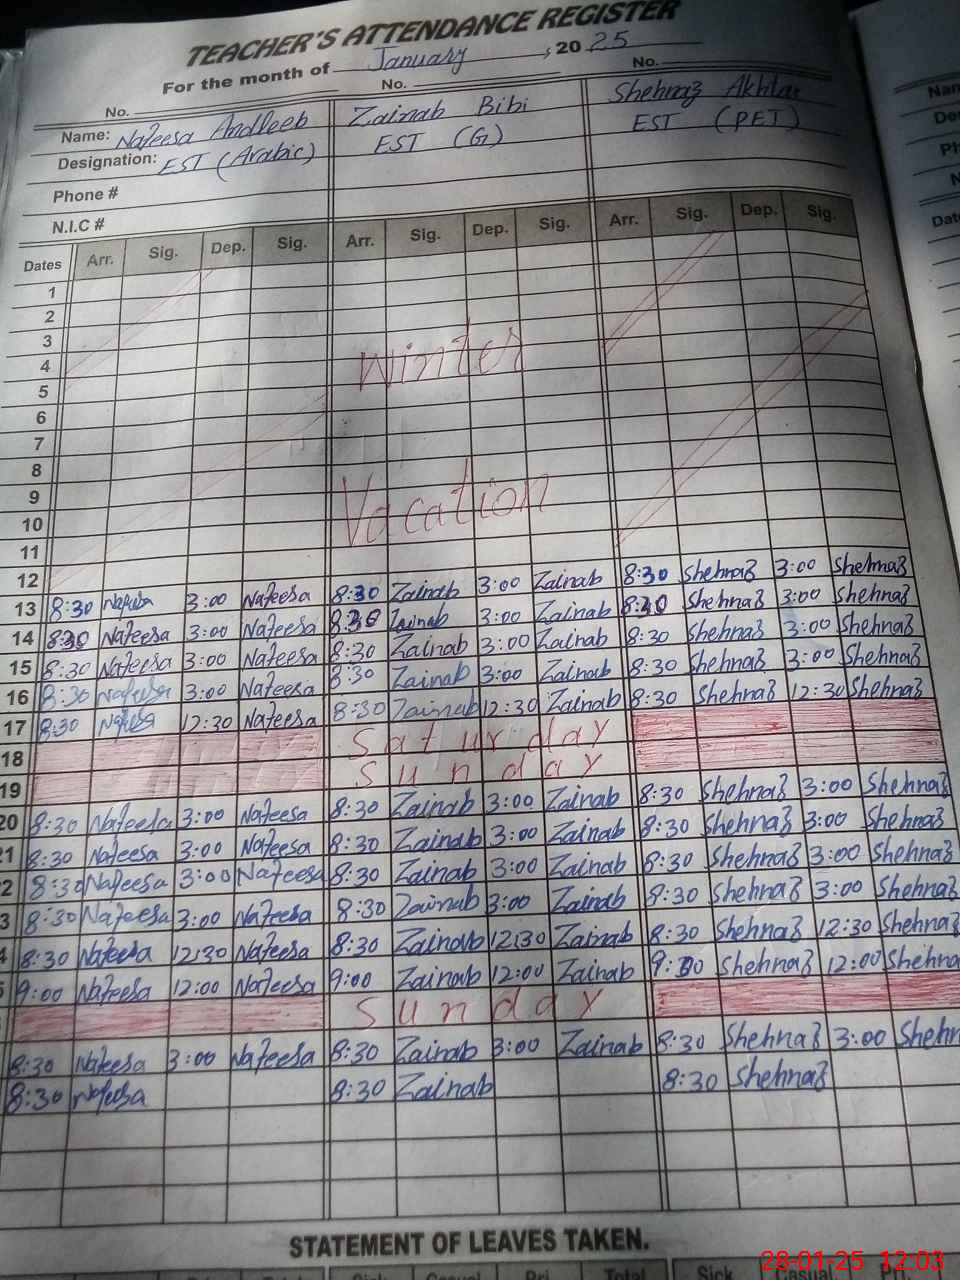 TEACHER'S ATTENDANCE REGISTER
For the month of January, 2025
No. No. No.
Name: Nafeesa Andleeb Zainab Bibi Shehnaz Akhtar
Designation: EST (Arabic) EST (G) EST (PET)
Phone #
N.I.C #
Dates Arr. Sig. Dep. Sig. Arr. Sig. Dep. Sig. Arr. Sig. Dep. Sig.
1
2
3
4 Winter
5
6
7
8
9
10 Vacation
11
12
13 8:30 Nafeesa 3:00 Nafeesa 8:30 Zainab 3:00 Zainab 8:30 Shehnaz 3:00 Shehnaz
14 8:30 Nafeesa 3:00 Nafeesa 8:30 Zainab 3:00 Zainab 8:30 Shehnaz 3:00 Shehnaz
15 8:30 Nafeesa 3:00 Nafeesa 8:30 Zainab 3:00 Zainab 8:30 Shehnaz 3:00 Shehnaz
16 8:30 Nafeesa 3:00 Nafeesa 8:30 Zainab 3:00 Zainab 8:30 Shehnaz 3:00 Shehnaz
17 8:30 Nafeesa 12:30 Nafeesa 8:30 Zainab 12:30 Zainab 8:30 Shehnaz 12:30 Shehnaz
18 Saturday
19 Sunday
20 8:30 Nafeesa 3:00 Nafeesa 8:30 Zainab 3:00 Zainab 8:30 Shehnaz 3:00 Shehnaz
21 8:30 Nafeesa 3:00 Nafeesa 8:30 Zainab 3:00 Zainab 8:30 Shehnaz 3:00 Shehnaz
2 8:30 Nafeesa 3:00 Nafeesa 8:30 Zainab 3:00 Zainab 8:30 Shehnaz 3:00 Shehnaz
3 8:30 Nafeesa 3:00 Nafeesa 8:30 Zainab 3:00 Zainab 8:30 Shehnaz 3:00 Shehnaz
4 8:30 Nafeesa 12:30 Nafeesa 8:30 Zainab 12:30 Zainab 8:30 Shehnaz 12:30 Shehnaz
5 9:00 Nafeesa 12:00 Nafeesa 9:00 Zainab 12:00 Zainab 9:00 Shehnaz 12:00 Shehna
Sunday
8:30 Nafeesa 3:00 Nafeesa 8:30 Zainab 3:00 Zainab 8:30 Shehnaz 3:00 Shehn
8:30 Nafeesa 8:30 Zainab 8:30 Shehnaz
STATEMENT OF LEAVES TAKEN.
Sick Casual Pri. Total Sick Casual
28-01-25 12:03